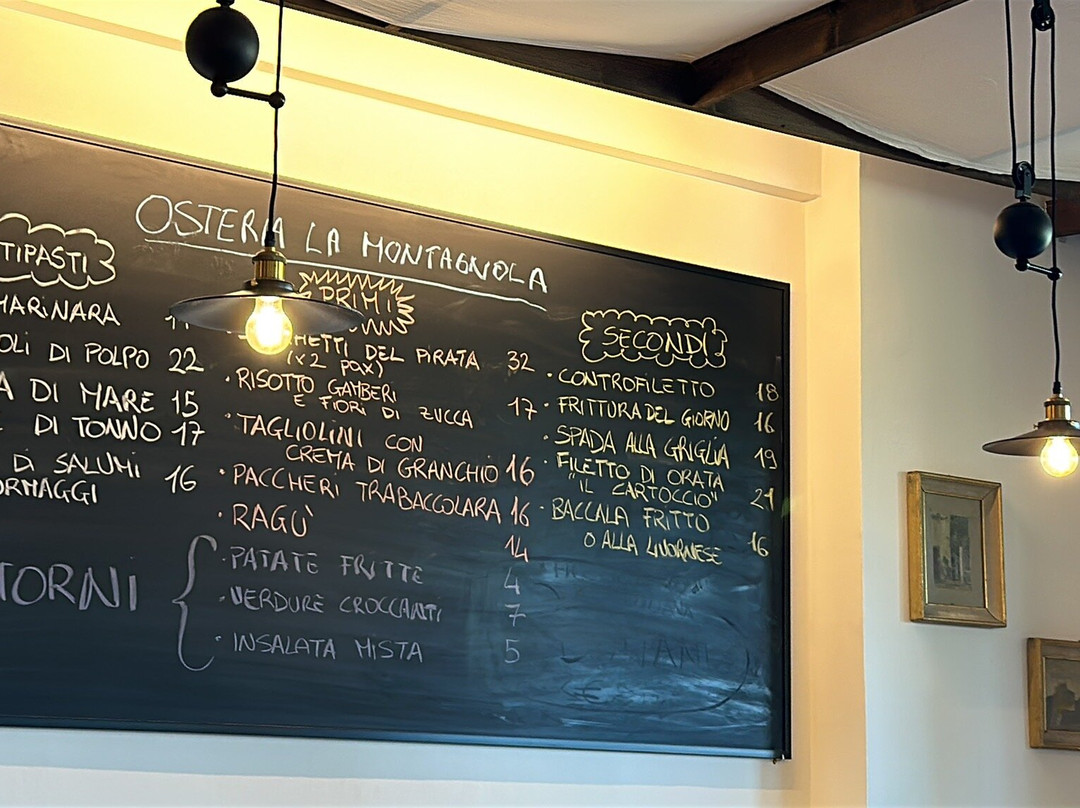 OSTERIA LA MONTAGNOLA
TIPASTI
MARINARA
OLI DI POLPO 22
A DI MARE 15
DI TONNO 17
DI SALUMI 16
ORMAGGI
PRIMI
HETTI DEL PIRATA 32
(x2 pax)
• RISOTTO GAMBERI
E FIORI DI ZUCCA 17
• TAGLIOLINI CON
CREMA DI GRANCHIO 16
• PACCHERI TRABACCOLARA 16
• RAGÙ 14
TORNI
• PATATE FRITTE 4
• VERDURE CROCCANTI 7
• INSALATA MISTA 5
SECONDI
• CONTROFILETTO 18
• FRITTURA DEL GIORNO 16
• SPADA ALLA GRIGLIA 19
• FILETTO DI ORATA
"IL CARTOCCIO" 21
• BACCALA FRITTO
O ALLA LIVORNESE 16